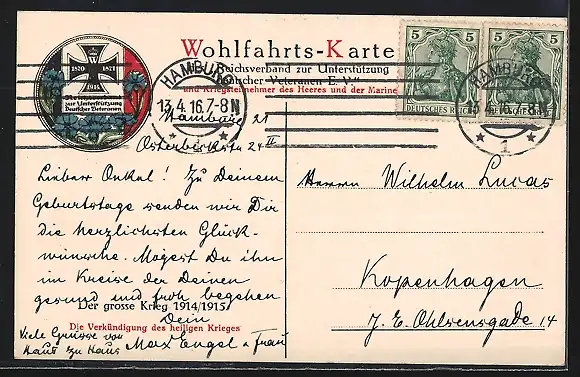 Wohlfahrts-Karte
Reichsverband zur Unterstützung
Deutscher Veteranen E. V.
und Kriegsteilnehmer des Heeres und der Marine
1870 1871
1914
zur Unterstützung
Deutscher Veteranen
HAMBURG
13.4.16.7-8N
* 1 *
5 5
DEUTSCHES REICH
HAMBURG
13.4.16.7-8N
* 1 *
5 5
DEUTSCHES REICH
Hamburg 21
Osterbeckstr 24 II
Lieber Onkel! Zu Deinem
Geburtstage senden wir Dir
die herzlichsten Glück-
wünsche. Mögest Du ihn
im Kreise der Deinen
gesund und froh begehen
Der grosse Krieg 1914/1915
Dein
Die Verkündigung des heiligen Krieges
Max Engel u Frau
Viele Grüsse von
Haus zu Haus
Herrn Wilhelm Lucas
Kopenhagen
J. E. Ohlsensgade 14